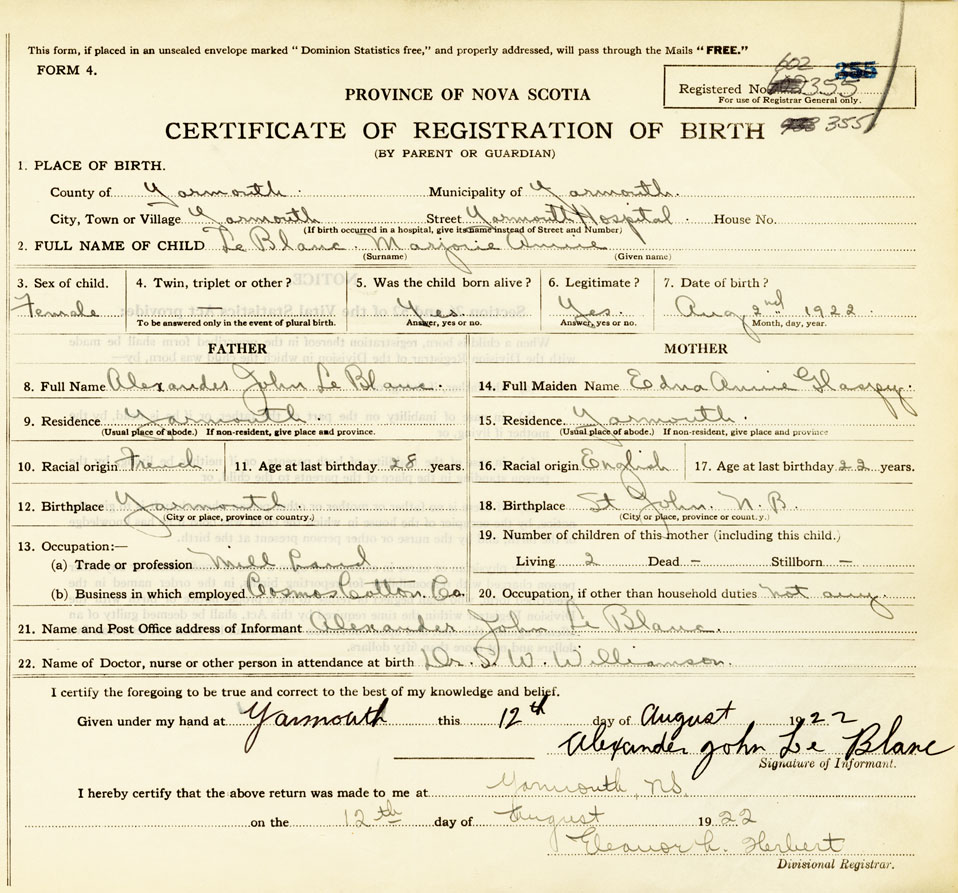 This form, if placed in an unsealed envelope marked "Dominion Statistics free," and properly addressed, will pass through the Mails "FREE."
FORM 4.
602 355
Registered No. 355
For use of Registrar General only.
PROVINCE OF NOVA SCOTIA
CERTIFICATE OF REGISTRATION OF BIRTH 355
(BY PARENT OR GUARDIAN)
1. PLACE OF BIRTH.
County of Yarmouth. Municipality of Yarmouth.
City, Town or Village Yarmouth Street Yarmouth Hospital. House No.
(If birth occurred in a hospital, give its name instead of Street and Number)
2. FULL NAME OF CHILD Le Blanc. Marjorie Annie
(Surname) (Given name)
3. Sex of child. 4. Twin, triplet or other? 5. Was the child born alive? 6. Legitimate? 7. Date of birth?
Female — Yes. Yes. Aug 2nd 1922.
To be answered only in the event of plural birth. Answer, yes or no. Answer, yes or no. Month, day, year.
FATHER MOTHER
8. Full Name Alexander John Le Blanc. 14. Full Maiden Name Edna Annie
9. Residence Yarmouth. 15. Residence. Yarmouth.
(Usual place of abode.) If non-resident, give place and province. (Usual place of abode.) If non-resident, give place and province
10. Racial origin French 11. Age at last birthday 28 years. 16. Racial origin English 17. Age at last birthday 22 years.
12. Birthplace Yarmouth. 18. Birthplace St John. N.B.
(City or place, province or country.) (City or place, province or country.)
19. Number of children of this mother (including this child.)
13. Occupation:—
(a) Trade or profession Mill Hand Living 2 Dead — Stillborn —
(b) Business in which employed Cosmos Cotton Co. 20. Occupation, if other than household duties not any.
21. Name and Post Office address of Informant Alexander John Le Blanc.
22. Name of Doctor, nurse or other person in attendance at birth Dr. S. W. Williamson.
I certify the foregoing to be true and correct to the best of my knowledge and belief.
Given under my hand at Yarmouth this 12th day of August 1922
Alexander John Le Blanc
Signature of Informant.
I hereby certify that the above return was made to me at Yarmouth, N.S.
on the 12th day of August 1922
Eleanor L. Herbert
Divisional Registrar.